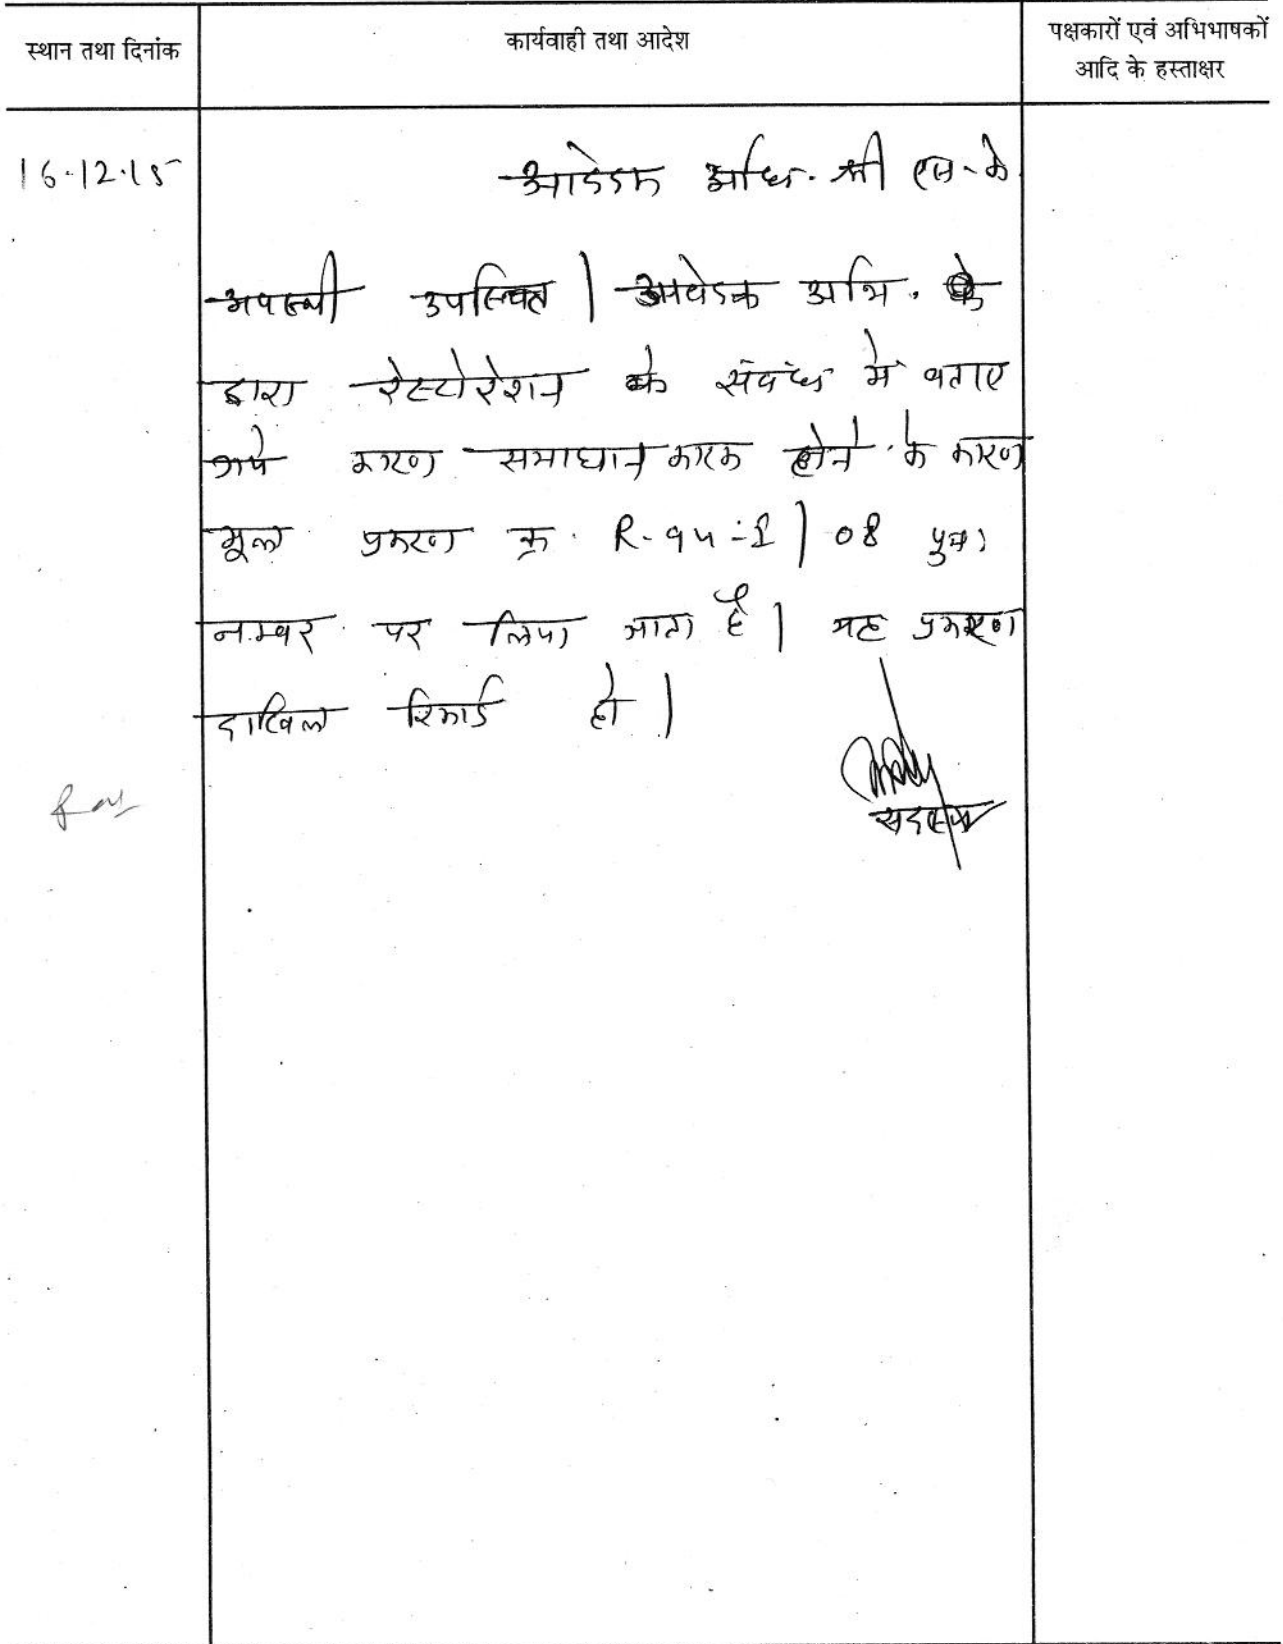 स्थान तथा दिनांक
कार्यवाही तथा आदेश
पक्षकारों एवं अभिभाषकों
आदि के हस्ताक्षर
16.12.15
आवेदक अभि. श्री एस. के.
उपस्थित | आवेदक अभि. के
द्वारा रेस्टोरेशन के संबंध में बताए
गये कारण समाधान कारक होने के कारण
मूल प्रकरण क्र. R-
नम्बर पर लिया जाता है | यह प्रकरण
दाखिल रिकार्ड हो |
सदस्य